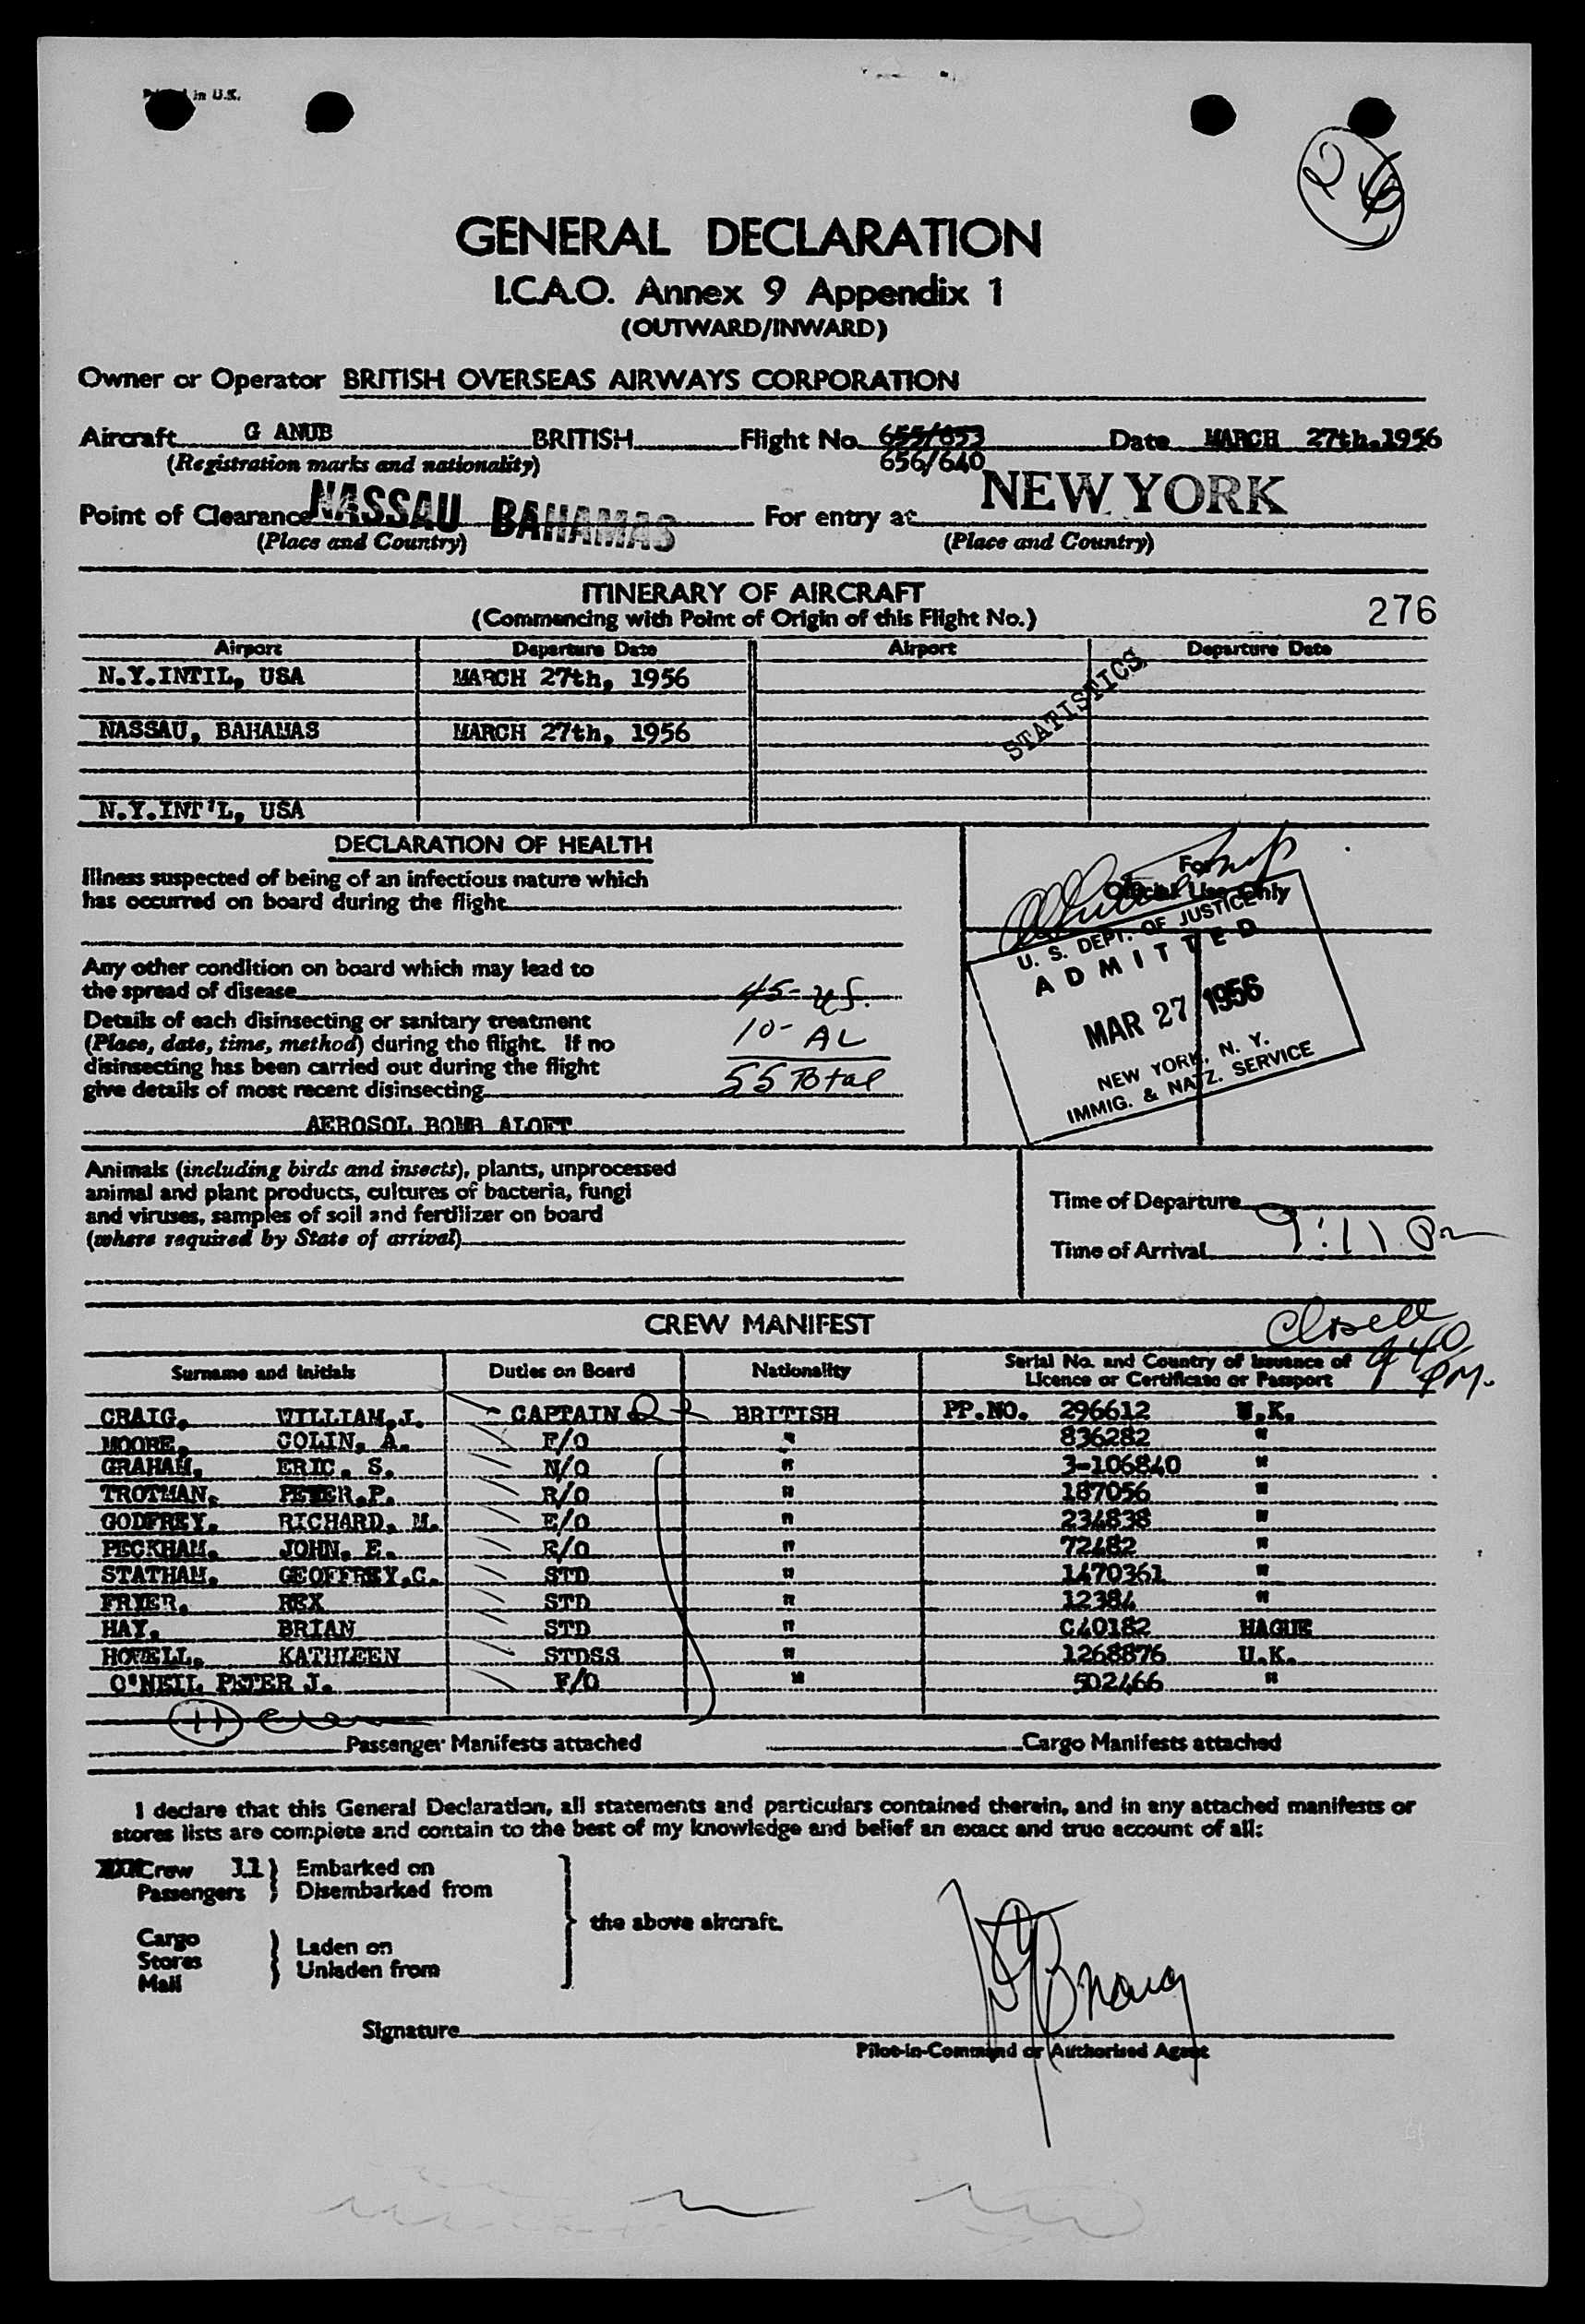 in U.K.
26
GENERAL DECLARATION
I.C.A.O. Annex 9 Appendix 1
(OUTWARD/INWARD)
Owner or Operator BRITISH OVERSEAS AIRWAYS CORPORATION
Aircraft G ANUB BRITISH Flight No. 655/653 Date MARCH 27th, 1956
(Registration marks and nationality) 656/640
Point of Clearance NASSAU BAHAMAS For entry at NEW YORK
(Place and Country) (Place and Country)
ITINERARY OF AIRCRAFT
(Commencing with Point of Origin of this Flight No.) 276
Airport Departure Date Airport Departure Date
N.Y.INTIL, USA MARCH 27th, 1956
STATISTICS
NASSAU, BAHAMAS MARCH 27th, 1956
N.Y.INT'L, USA
DECLARATION OF HEALTH
For
Official Use Only
Illness suspected of being of an infectious nature which
has occurred on board during the flight
U. S. DEPT. OF JUSTICE
ADMITTED
MAR 27 1956
NEW YORK, N. Y.
IMMIG. & NATZ. SERVICE
Any other condition on board which may lead to
the spread of disease 45-US.
Details of each disinsecting or sanitary treatment
(Place, date, time, method) during the flight. If no 10-AL
disinsecting has been carried out during the flight
give details of most recent disinsecting 55 Total
AEROSOL BOMB ALOFT
Animals (including birds and insects), plants, unprocessed
animal and plant products, cultures of bacteria, fungi
and viruses, samples of soil and fertilizer on board
(where required by State of arrival)
Time of Departure
Time of Arrival 9:11 Pm
CREW MANIFEST
Closed
940
PM.
Surname and Initials Duties on Board Nationality Serial No. and Country of Issuance of
Licence or Certificate or Passport
CRAIG, WILLIAM.J. CAPTAIN BRITISH PP.NO. 296612 U.K.
MOORE, COLIN. A. F/O " 836282 "
GRAHAM, ERIC. S. N/O " 3-106840 "
TROTMAN, PETER.P. R/O " 187056 "
GODFREY, RICHARD. M. E/O " 234838 "
PECKHAM, JOHN. E. E/O " 72482 "
STATHAM, GEOFFREY.C. STD " 1470361 "
FRYER, REX STD " 12384 "
HAY, BRIAN STD " C40182 HAGUE
HOWELL, KATHLEEN STDSS " 1268876 U.K.
O'NEIL PETER J. F/O " 502466 "
11 Crew
Passenger Manifests attached Cargo Manifests attached
I declare that this General Declaration, all statements and particulars contained therein, and in any attached manifests or
stores lists are complete and contain to the best of my knowledge and belief an exact and true account of all:
Crew 11 Embarked on
Passengers Disembarked from
the above aircraft.
Cargo
Stores Laden on
Mail Unladen from
Signature
Pilot-in-Command or Authorised Agent